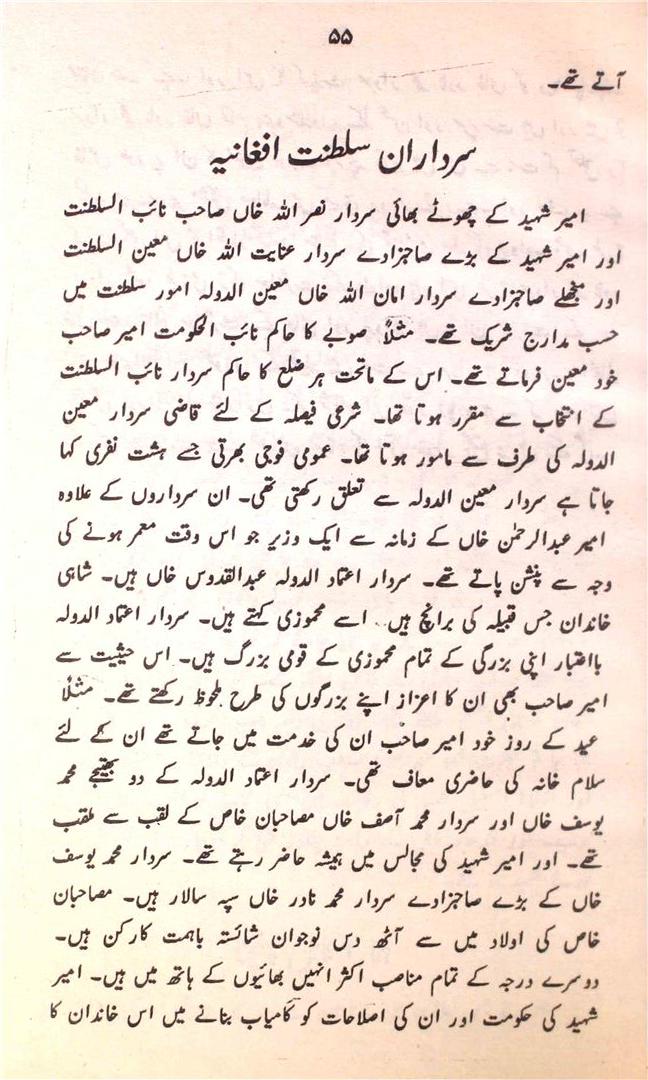 ۵۵
آتے تھے۔
سرداران سلطنت افغانیہ
امیر شہید کے چھوٹے بھائی سردار نصر اللہ خاں صاحب نائب السلطنت
اور امیر شہید کے بڑے صاحبزادے سردار عنایت اللہ خاں معین السلطنت
اور منجھلے صاحبزادے سردار امان اللہ خاں معین الدولہ امور سلطنت میں
حسب مدارج شریک تھے۔ مثلاً صوبے کا حاکم نائب الحکومت امیر صاحب
خود معین فرماتے تھے۔ اس کے ماتحت ہر ضلع کا حاکم سردار نائب السلطنت
کے انتخاب سے مقرر ہوتا تھا۔ شرعی فیصلہ کے لئے قاضی سردار معین
الدولہ کی طرف سے مامور ہوتا تھا۔ عمومی فوجی بھرتی جسے ہشت نفری کہا
جاتا ہے سردار معین الدولہ سے تعلق رکھتی تھی۔ ان سرداروں کے علاوہ
امیر عبدالرحمٰن خاں کے زمانہ سے ایک وزیر جو اس وقت معمر ہونے کی
وجہ سے پنشن پاتے تھے۔ سردار اعتماد الدولہ عبدالقدوس خاں ہیں۔ شاہی
خاندان جس قبیلہ کی برانچ ہیں۔ اسے محموزی کہتے ہیں۔ سردار اعتماد الدولہ
بااعتبار اپنی بزرگی کے تمام محموزی کے قومی بزرگ ہیں۔ اس حیثیت سے
امیر صاحب بھی ان کا اعزاز اپنے بزرگوں کی طرح ملحوظ رکھتے تھے۔ مثلاً
عید کے روز خود امیر صاحب ان کی خدمت میں جاتے تھے ان کے لئے
سلام خانہ کی حاضری معاف تھی۔ سردار اعتماد الدولہ کے دو بھتیجے محمد
یوسف خاں اور سردار محمد آصف خاں مصاحبان خاص کے لقب سے ملقب
تھے۔ اور امیر شہید کی مجالس میں ہمیشہ حاضر رہتے تھے۔ سردار محمد یوسف
خاں کے بڑے صاحبزادے سردار محمد نادر خاں سپہ سالار ہیں۔ مصاحبان
خاص کی اولاد میں سے آٹھ دس نوجوان شائستہ باہمت کارکن ہیں۔
دوسرے درجہ کے تمام مناصب اکثر انہیں بھائیوں کے ہاتھ میں ہیں۔ امیر
شہید کی حکومت اور ان کی اصلاحات کو کامیاب بنانے میں اس خاندان کا